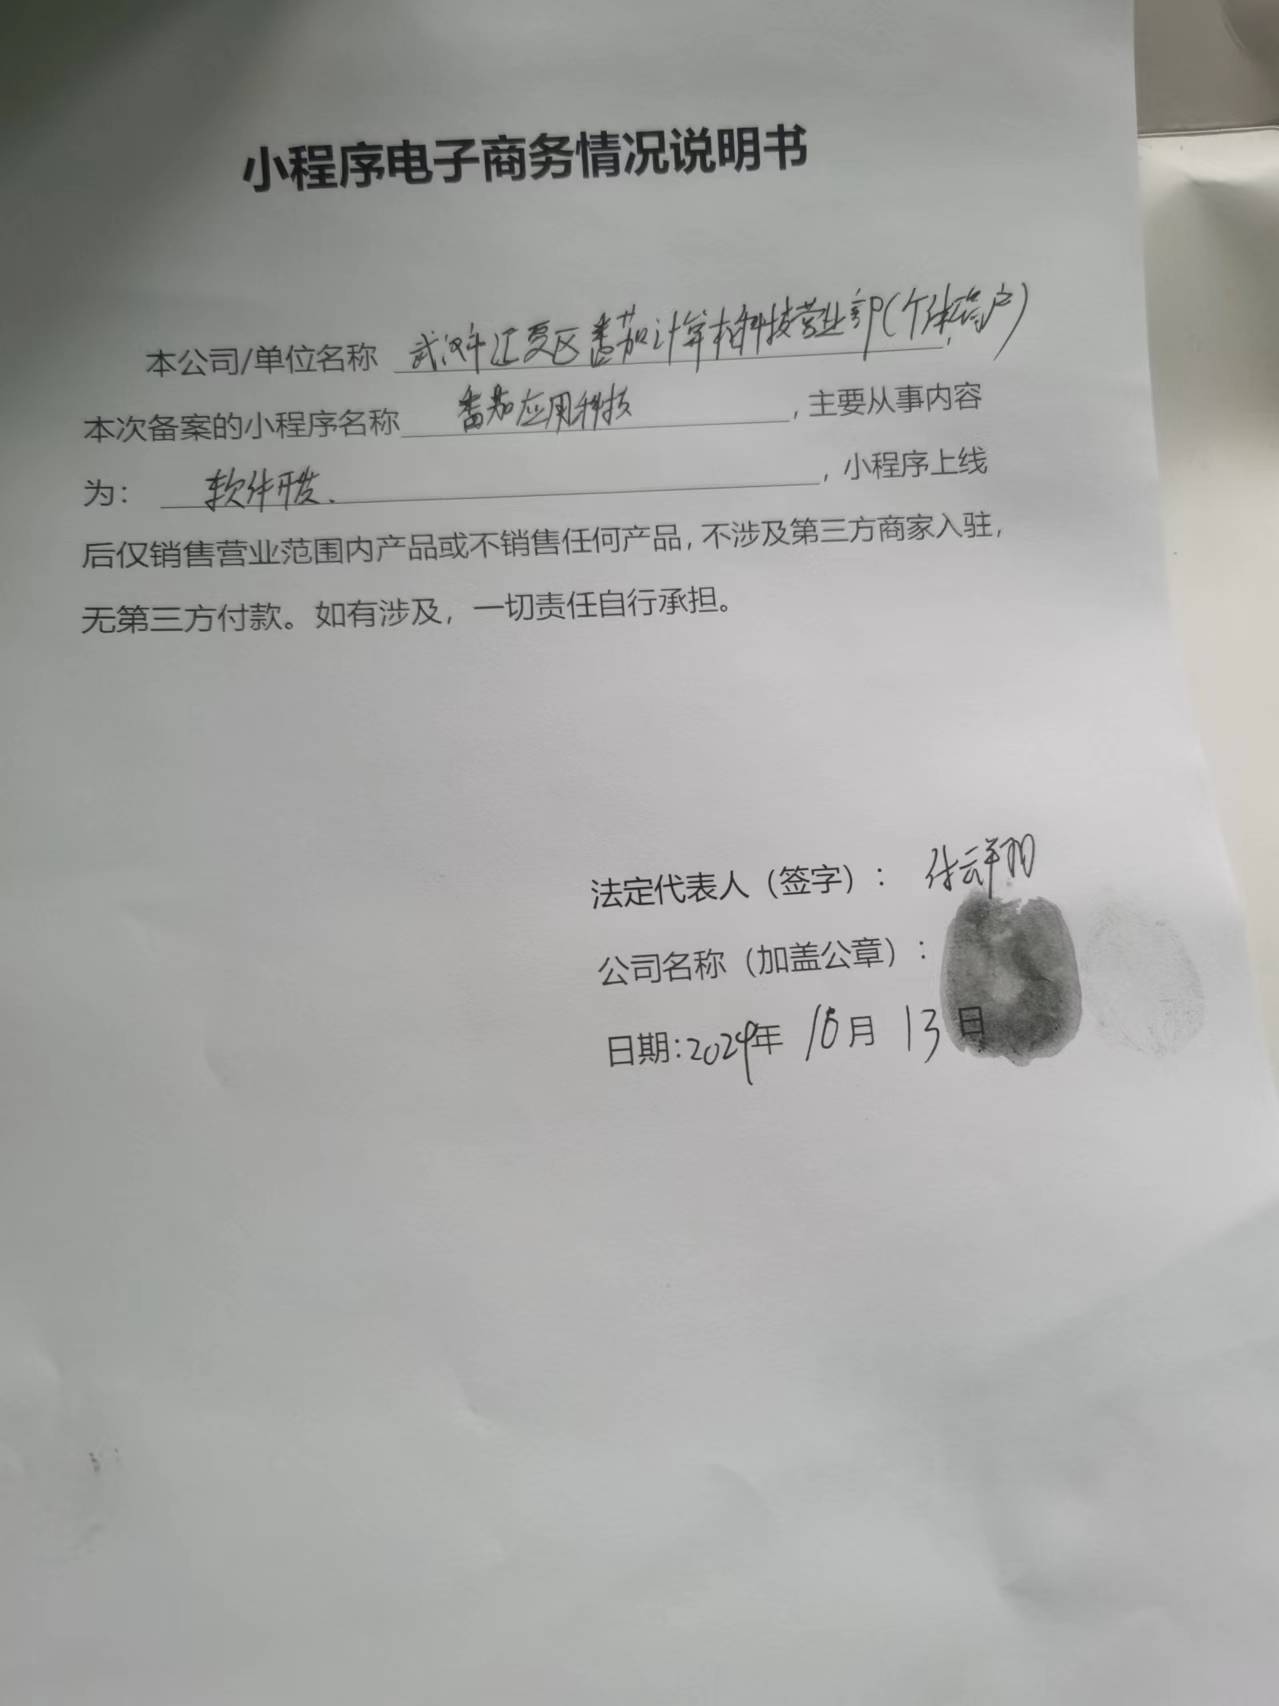 小程序电子商务情况说明书
本公司/单位名称 武汉市江夏区番茄计算机科技营业部(个体工商户)
本次备案的小程序名称 番茄应用科技 ，主要从事内容
为： 软件开发. ，小程序上线
后仅销售营业范围内产品或不销售任何产品，不涉及第三方商家入驻，
无第三方付款。如有涉及，一切责任自行承担。
法定代表人（签字）：
公司名称（加盖公章）：
日期:2024年 10月 13日